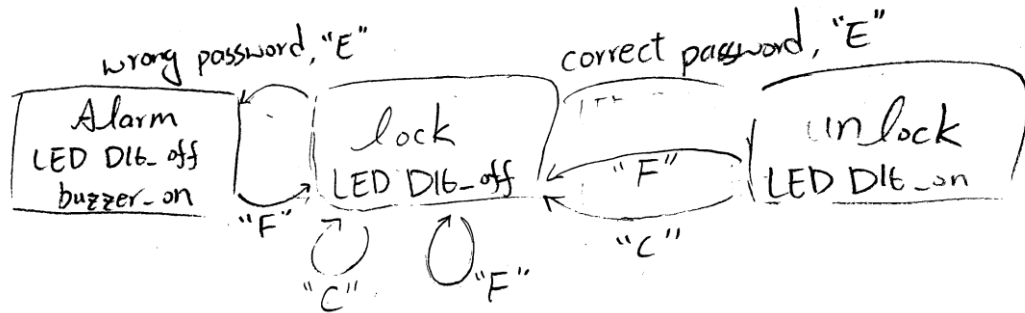 wrong password, "E"
correct password, "E"
Alarm
LED D16_off
buzzer_on
lock
LED D16_off
unlock
LED D16_on
"F"
"F"
"C"
"C"
"F"